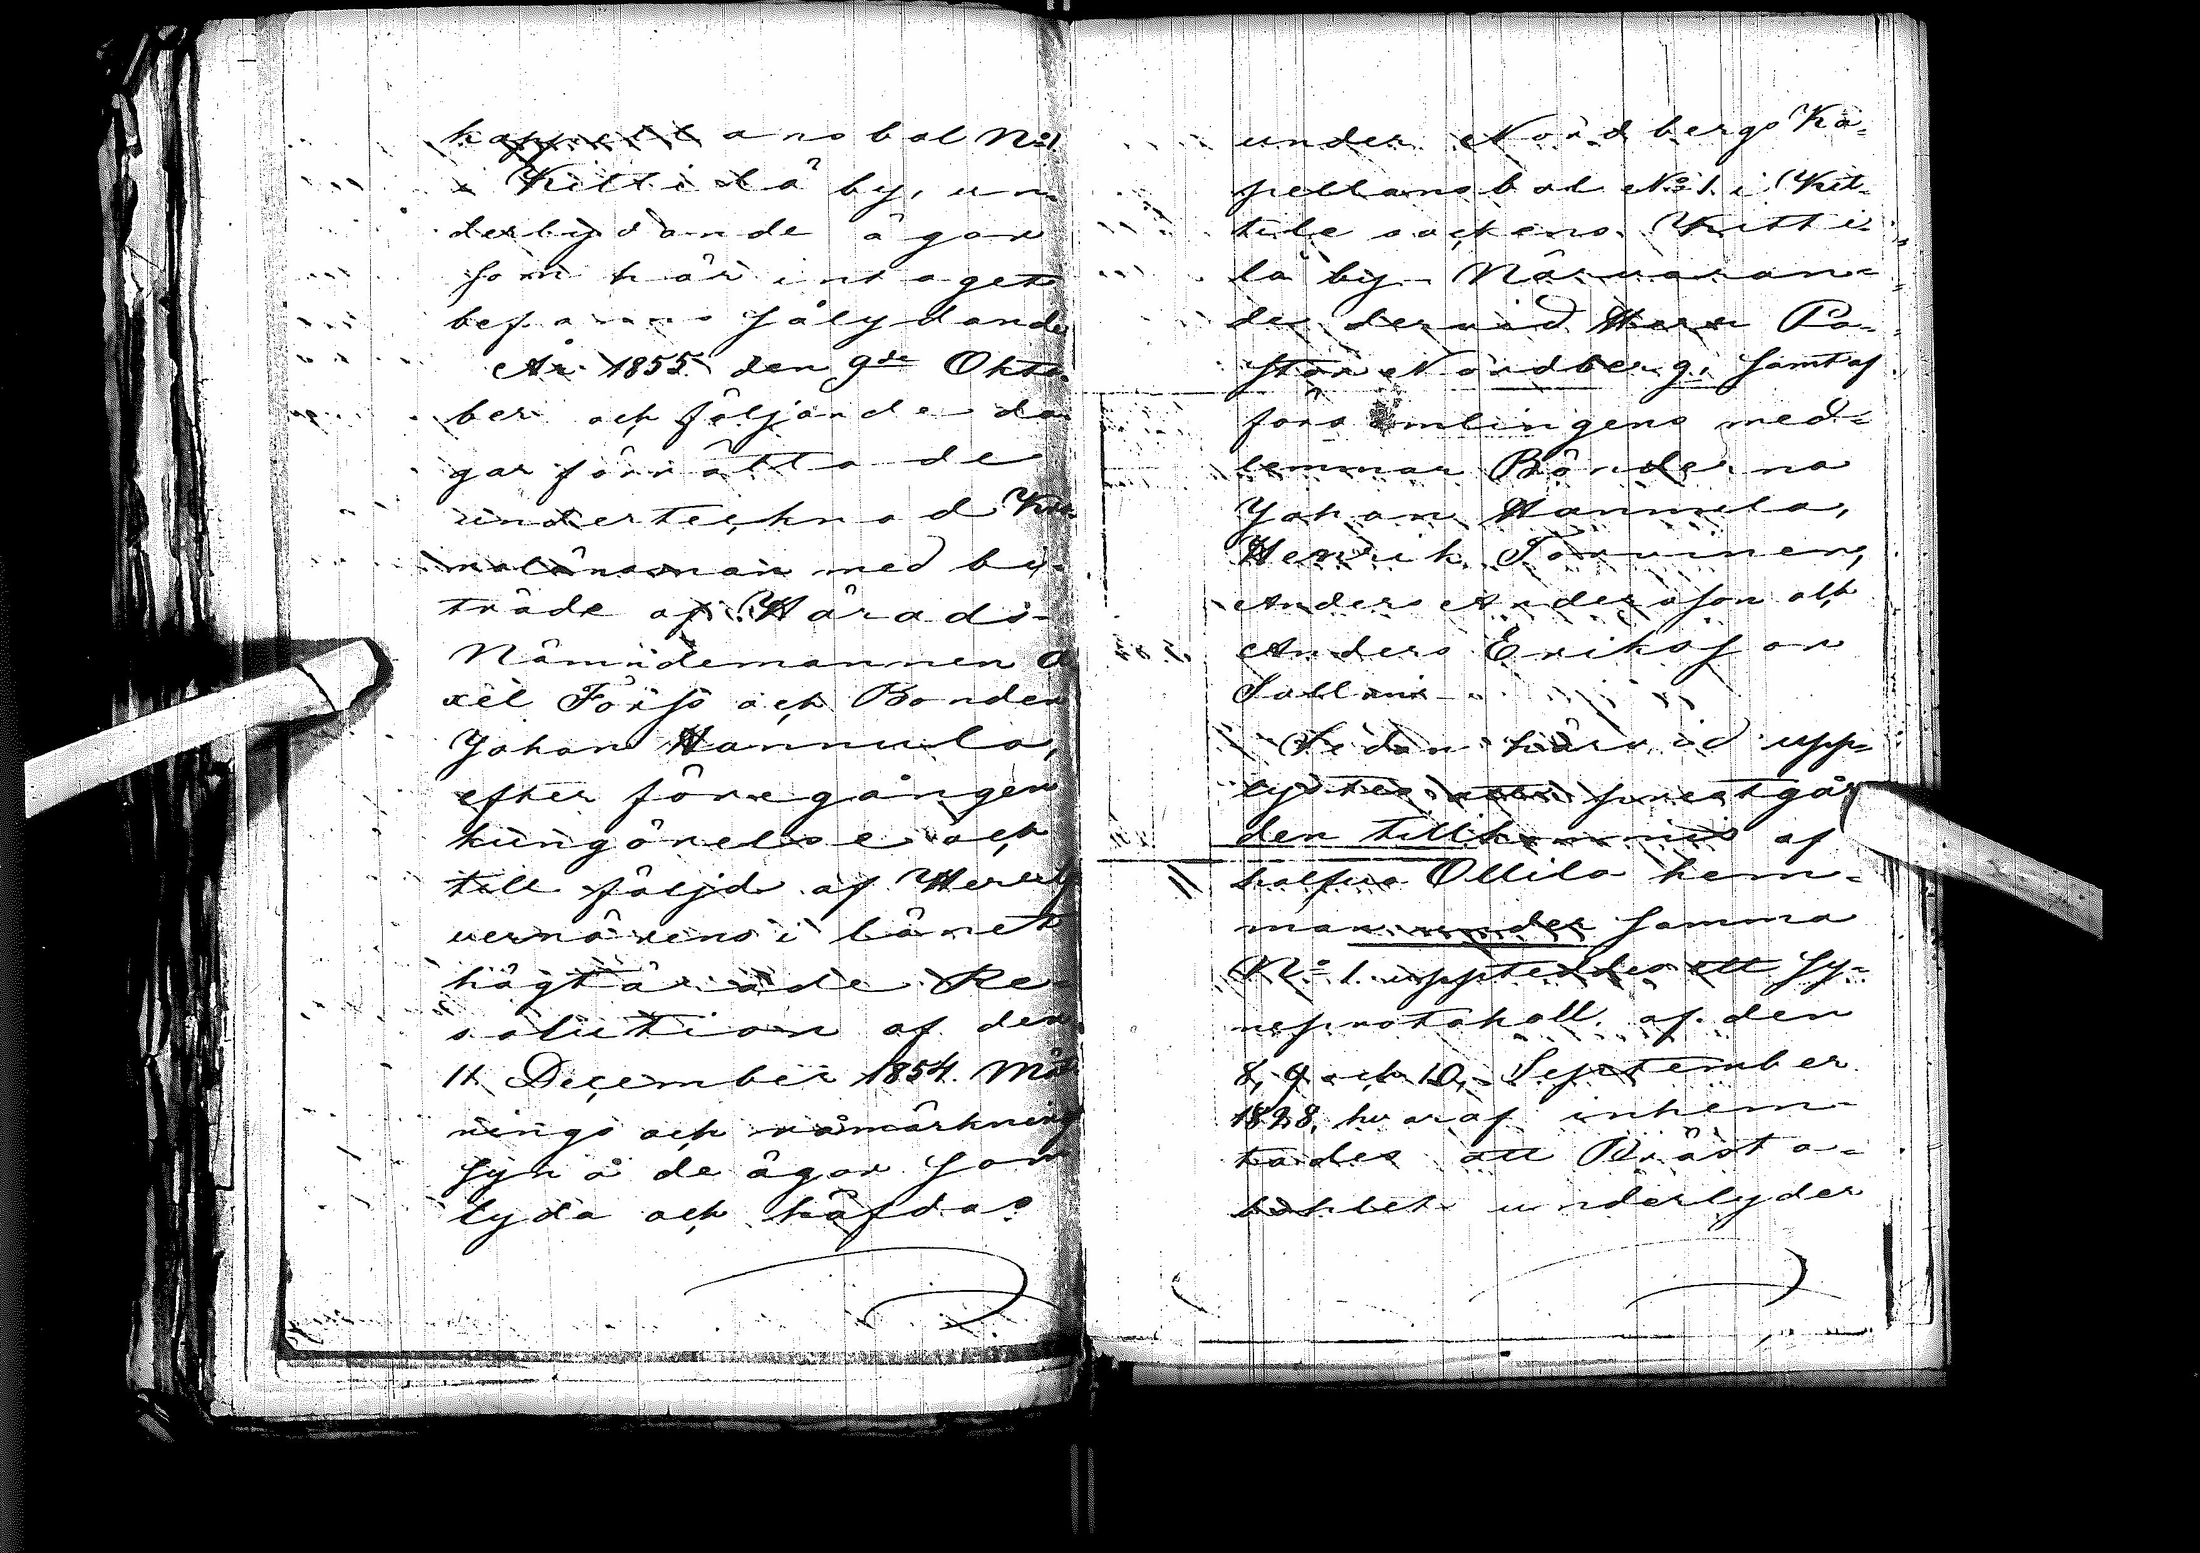 kappellansbol No 1
i Kittilä by, un-
derlydande ägor
som här intaget
befanns sålydande
År 1855 den 9de Okto-
ber och följande da-
gar förrättade
undertecknad Kro-
nolänsman med bi-
träde af Härads-
Nämndemannen A-
xel Försö och Bonden
Johan Hannula,
efter föregången
kungörelse och
till följd af Herr
uernörens i länet
högtärade Re-
solution af den
11 December 1854. Mät-
nings och råmärknings
syn å de ägor som
lyda och häfdas
under Nordbergs Ka-
pellansbol No 1. i Kit-
tile sockens Kitti-
lä by. Närvaran-
de dervid Herr Pa-
stor Nordberg, samt af
församlingens med-
lemmar Bönderna
Johan Hannula,
Henrik Torvinen,
Anders Andersson och
Anders Eriksson
Sedan härvid upp-
lystes att prestgår-
den tillkommit af
halfva Ollila hem-
man under samma
No 1. uppteddes ett sy-
neprotokoll af den
8, 9 och 10, September
1828, hvaraf inhem-
tades att Prästa-
bohlet underlyder